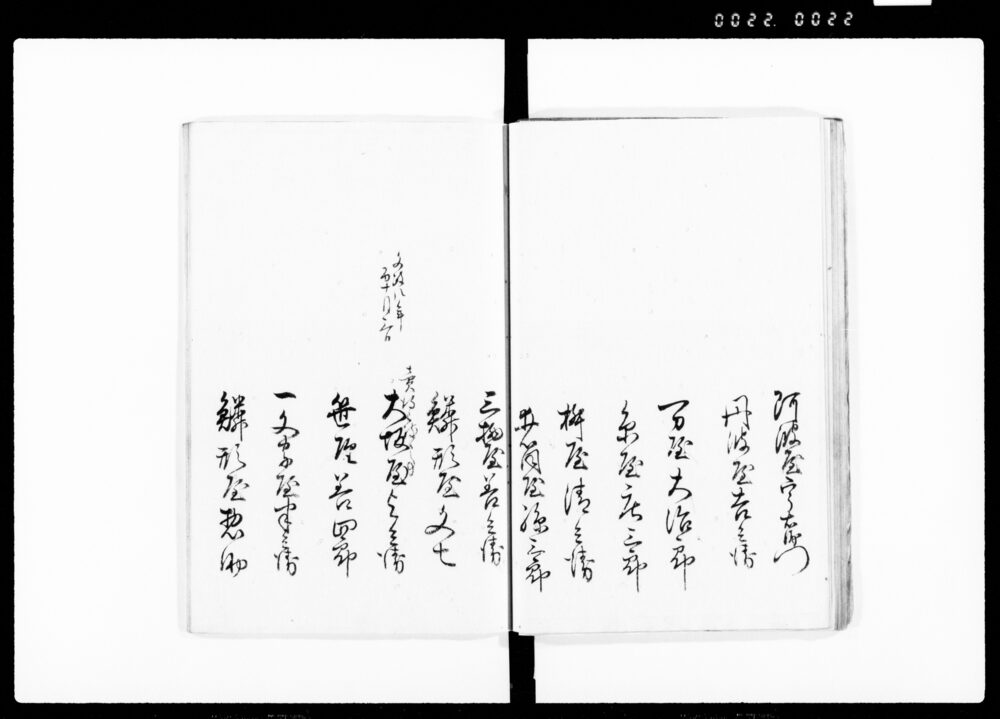 0022. 0022
阿波屋宇右衛門
丹波屋吉兵衛
万屋大治郎
糸屋庄三郎
桝屋清兵衛
屋孫三郎
三物屋善兵衛
鱗形屋文七
文政八年
酉十月
大坂屋与兵衛
笹屋善四郎
一文字屋半兵衛
鱗形屋惣助